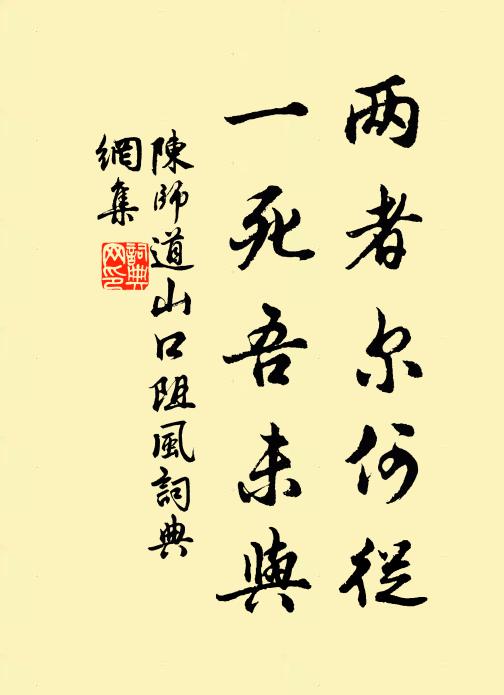 两者尔何従
一死吾未與
陳師道山口阻風詞典
網集
詞典
网印